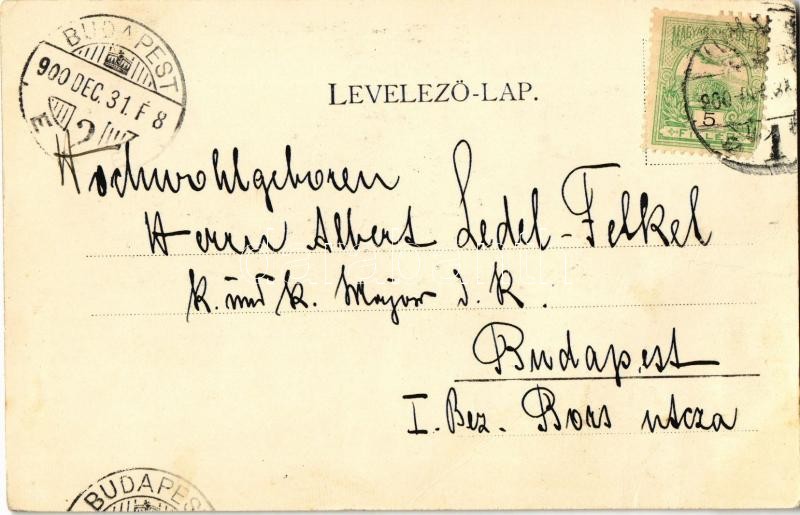 BUDAPEST
900 DEC. 31. F 8
LEVELEZŐ-LAP.
MAGYAR
5
FILLÉR
1
Hochwohlgeboren
Herrn Albert Ledel-Felkel
k. und k. Major d. R.
Budapest
I. Bez. Bors utcza
BUDAPES